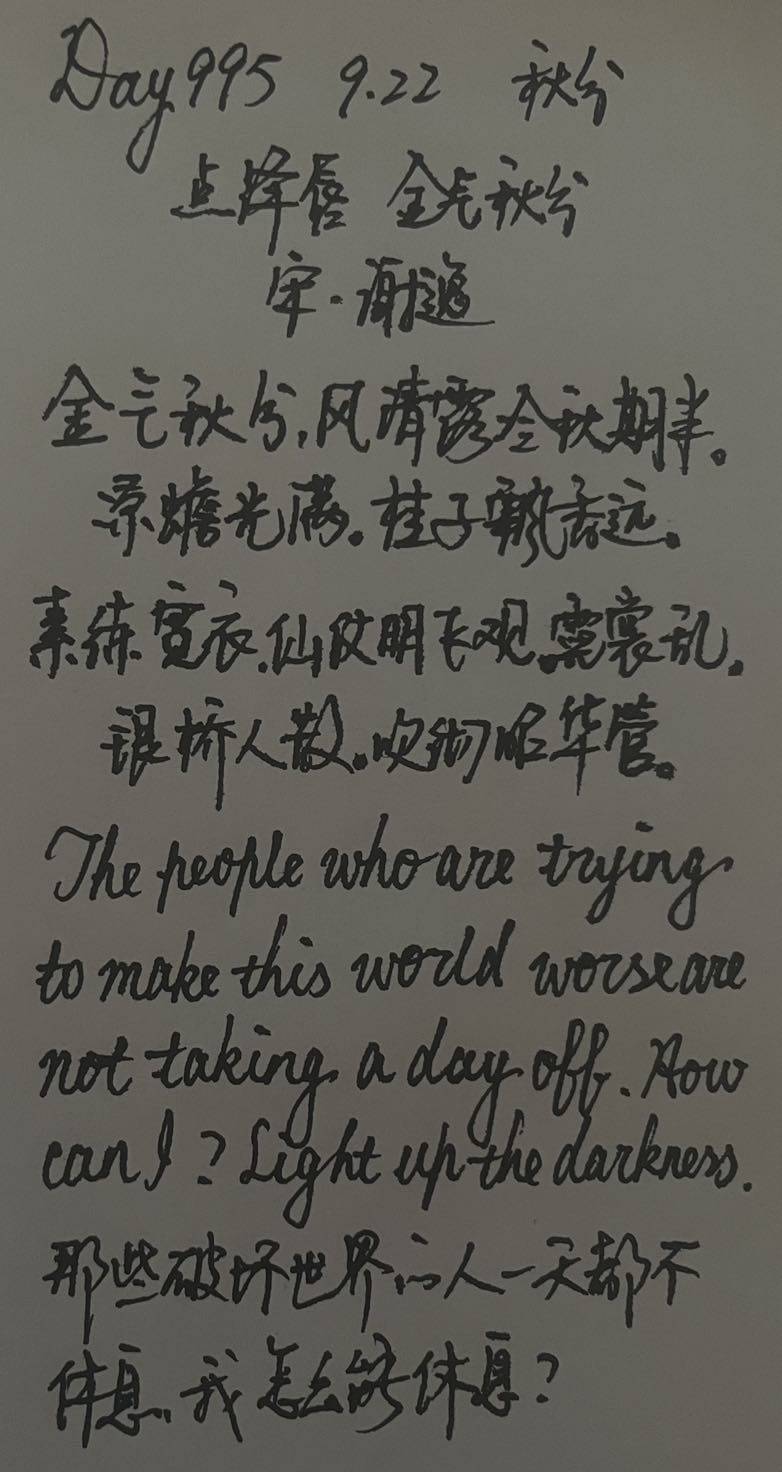 Day 995 9.22 秋分
点绛唇 金气秋分
宋·谢逸
金气秋分,风清露冷秋期半。
凉蟾光满。桂子飘香远。
素练宽衣,仙仗明飞观。霓裳乱。
银桥人散。吹彻昭华管。
The people who are trying
to make this world worse are
not taking a day off. How
can I? Light up the darkness.
那些破坏世界的人一天都不
休息、我怎么能休息?